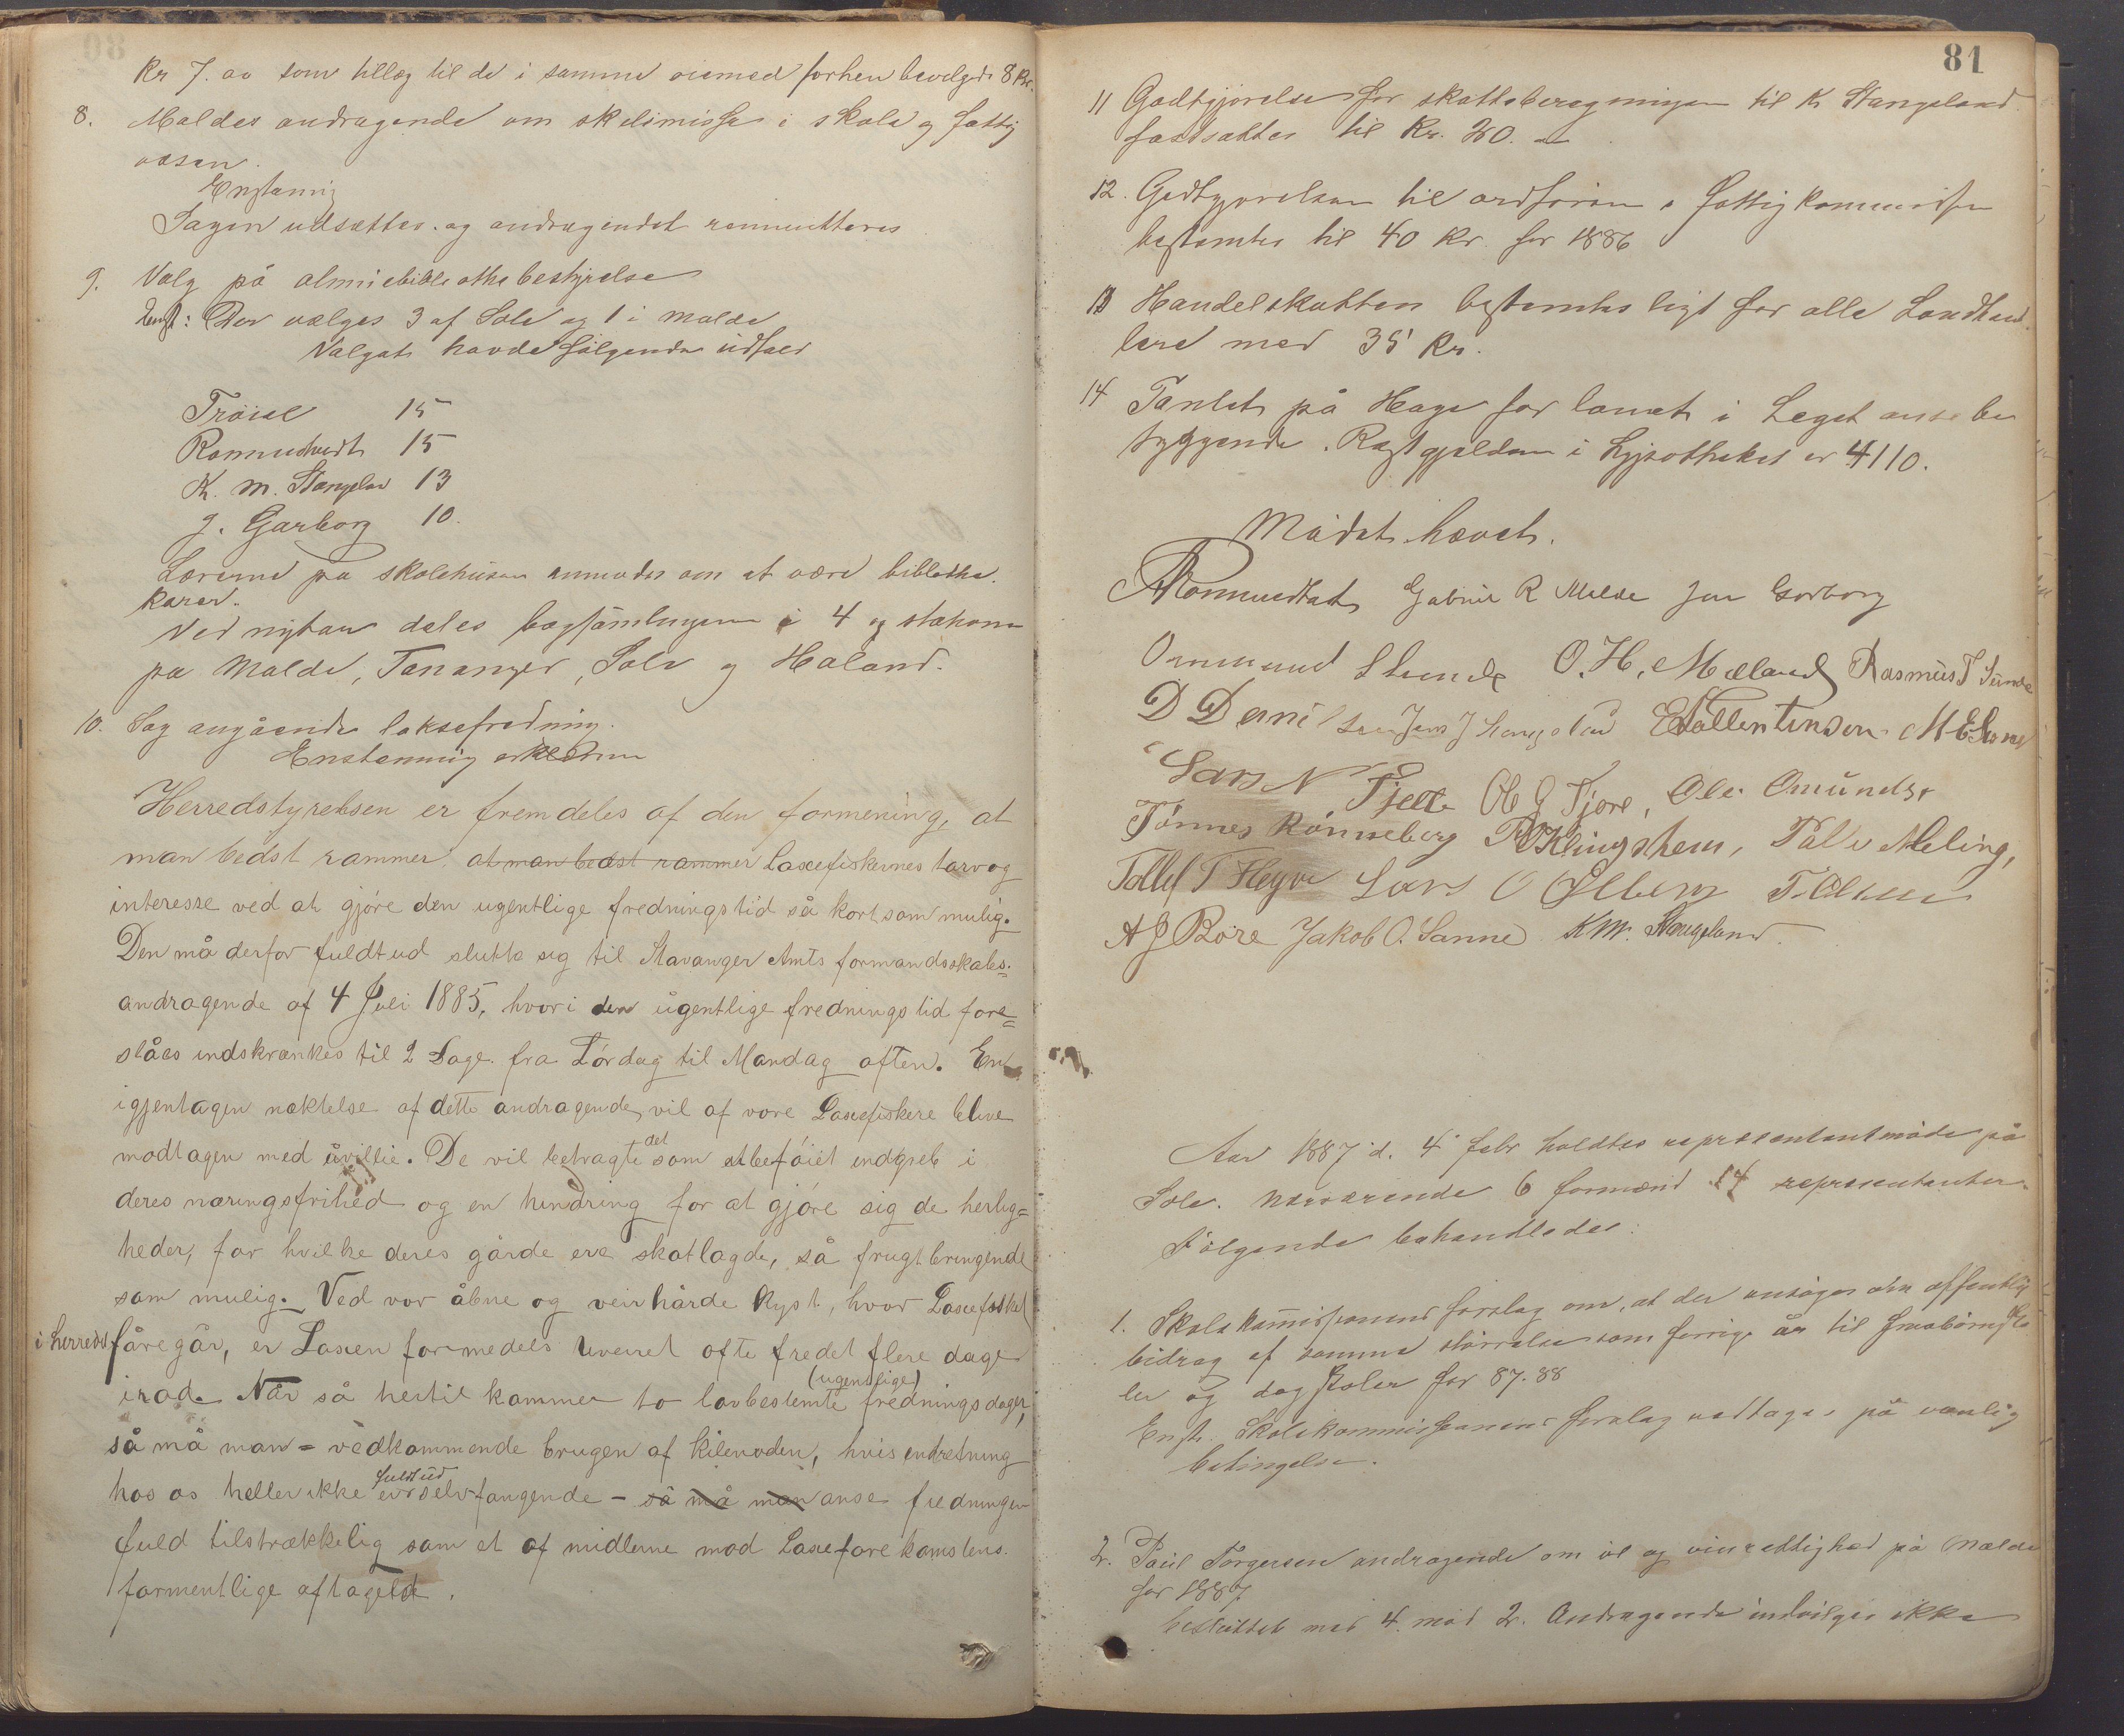 Kr 7. som tillæg til de i samme øiemed forhen bevilgede 8 Kr.
8. Maldes andragende om skilsmisse i skole og fattig
væsen.
Enstemig
Sagen udsættes og andragendet remmitteres
9. Valg på almuebibliothe bestyrelse
Enst: Der vælges 3 af Sole og 1 i Malde
Valget havde følgende udfald
Trøiel 15
Rommetvedt 15
K. M. Stangelan 13
J. Garborg 10.
Lærerne på skolehusene anmodes om at være bibliothe
karer.
Ved nytaar deles bogsamlingen i 4 stationer
på Malde, Tananger, Sole og Haland.
10. Sag angående laksefredning.
Enstemmig erklæring
Herredstyrelsen er fremdeles af den formening, at
man bedst rammer at man bedst rammer Laxefiskernes tarv og
interesse ved at gjøre den ugentlige fredningstid så kort som mulig.
Den må derfor fuldt ud slutte sig til Stavanger Amts formandsskabs=
andragende af 4 Juli 1885, hvori den ugentlige fredningstid fore=
slåes indskrænkes til 2 Dage fra Lørdag til Mandag aften. En
igjentagen næktelse af dette andragende, vil af vore Laxefiskere blive
modtagen med uvillie. De vil betragte det som et ubeføiet indgreb i
deres næringsfrihed og en hindring for at gjøre sig de herlig=
heder, for hvilke deres gårde ere skatlagde, så frugtbringende
som mulig. Ved vor åbne og veirhårde Kyst, hvor Laxefisket
i herredet foregår, er Laxen formedels uveiret ofte fredet flere dage
irad. Når så hertil kommer to lovbestemte (ugentlige) fredningsdage,
så må man = vedkommende brugen af kilenoden, hvis indretning
hos os heller ikke er fuldt ud selvfangende - så må man anse fredningen
fuld tilstrækkelig som et af midlerne mod Laxeforekomstens
formentlige aftagelse.
81
11 Godtgjørelse for skatteberegningen til K Stangeland
fastsættes til Kr. 20.
12. Godtgjørelsen til ordføren i fattigkommissen
bestemtes til 40 Kr. for 1886
13 Handelskatten bestemtes ligt for alle Landhand
lere med 35 Kr.
14 Pantet på Haga for lånet i Leget anse be
tyggende. Restgjælden i Hypotheket er 4110.
Mødet hævet.
Rommetvedt Gabriel R Malde Jon Garborg
Ommund Sunde O. H. Mæland Rasmus T Sunde
D Danielsen Jens J Stangeland E Vallentinsen M E Sømme
Lars N Tjelta Ole G Tjore, Ole Omundsen
Tønnes Rønneberg R Klingsheim, Pål Meling,
Tollef T Hegre Lars O Ølberg T. Olsen
A J Böre Jakob O. Sanne K M. Stangeland.
Aar 1887 d. 4 febr holdtes repræsentantmøde på
Sole. Nærværende 6 formænd 14 representanter.
Følgende behandledes:
1. Skolekommissionens forslag om, at der ansøges om offentlig
bidrag af samme størrelse som forrige år til småbørnsko
ler og dagskoler for 87-88
Enst. Skolekommissionens forslag vedtages på vanlig
betingelse.
2. Paul Torgersen andragende om øl og vinrettighed på Malde
for 1887.
besluttet med 4 mod 2. Andragende indvilges ikke